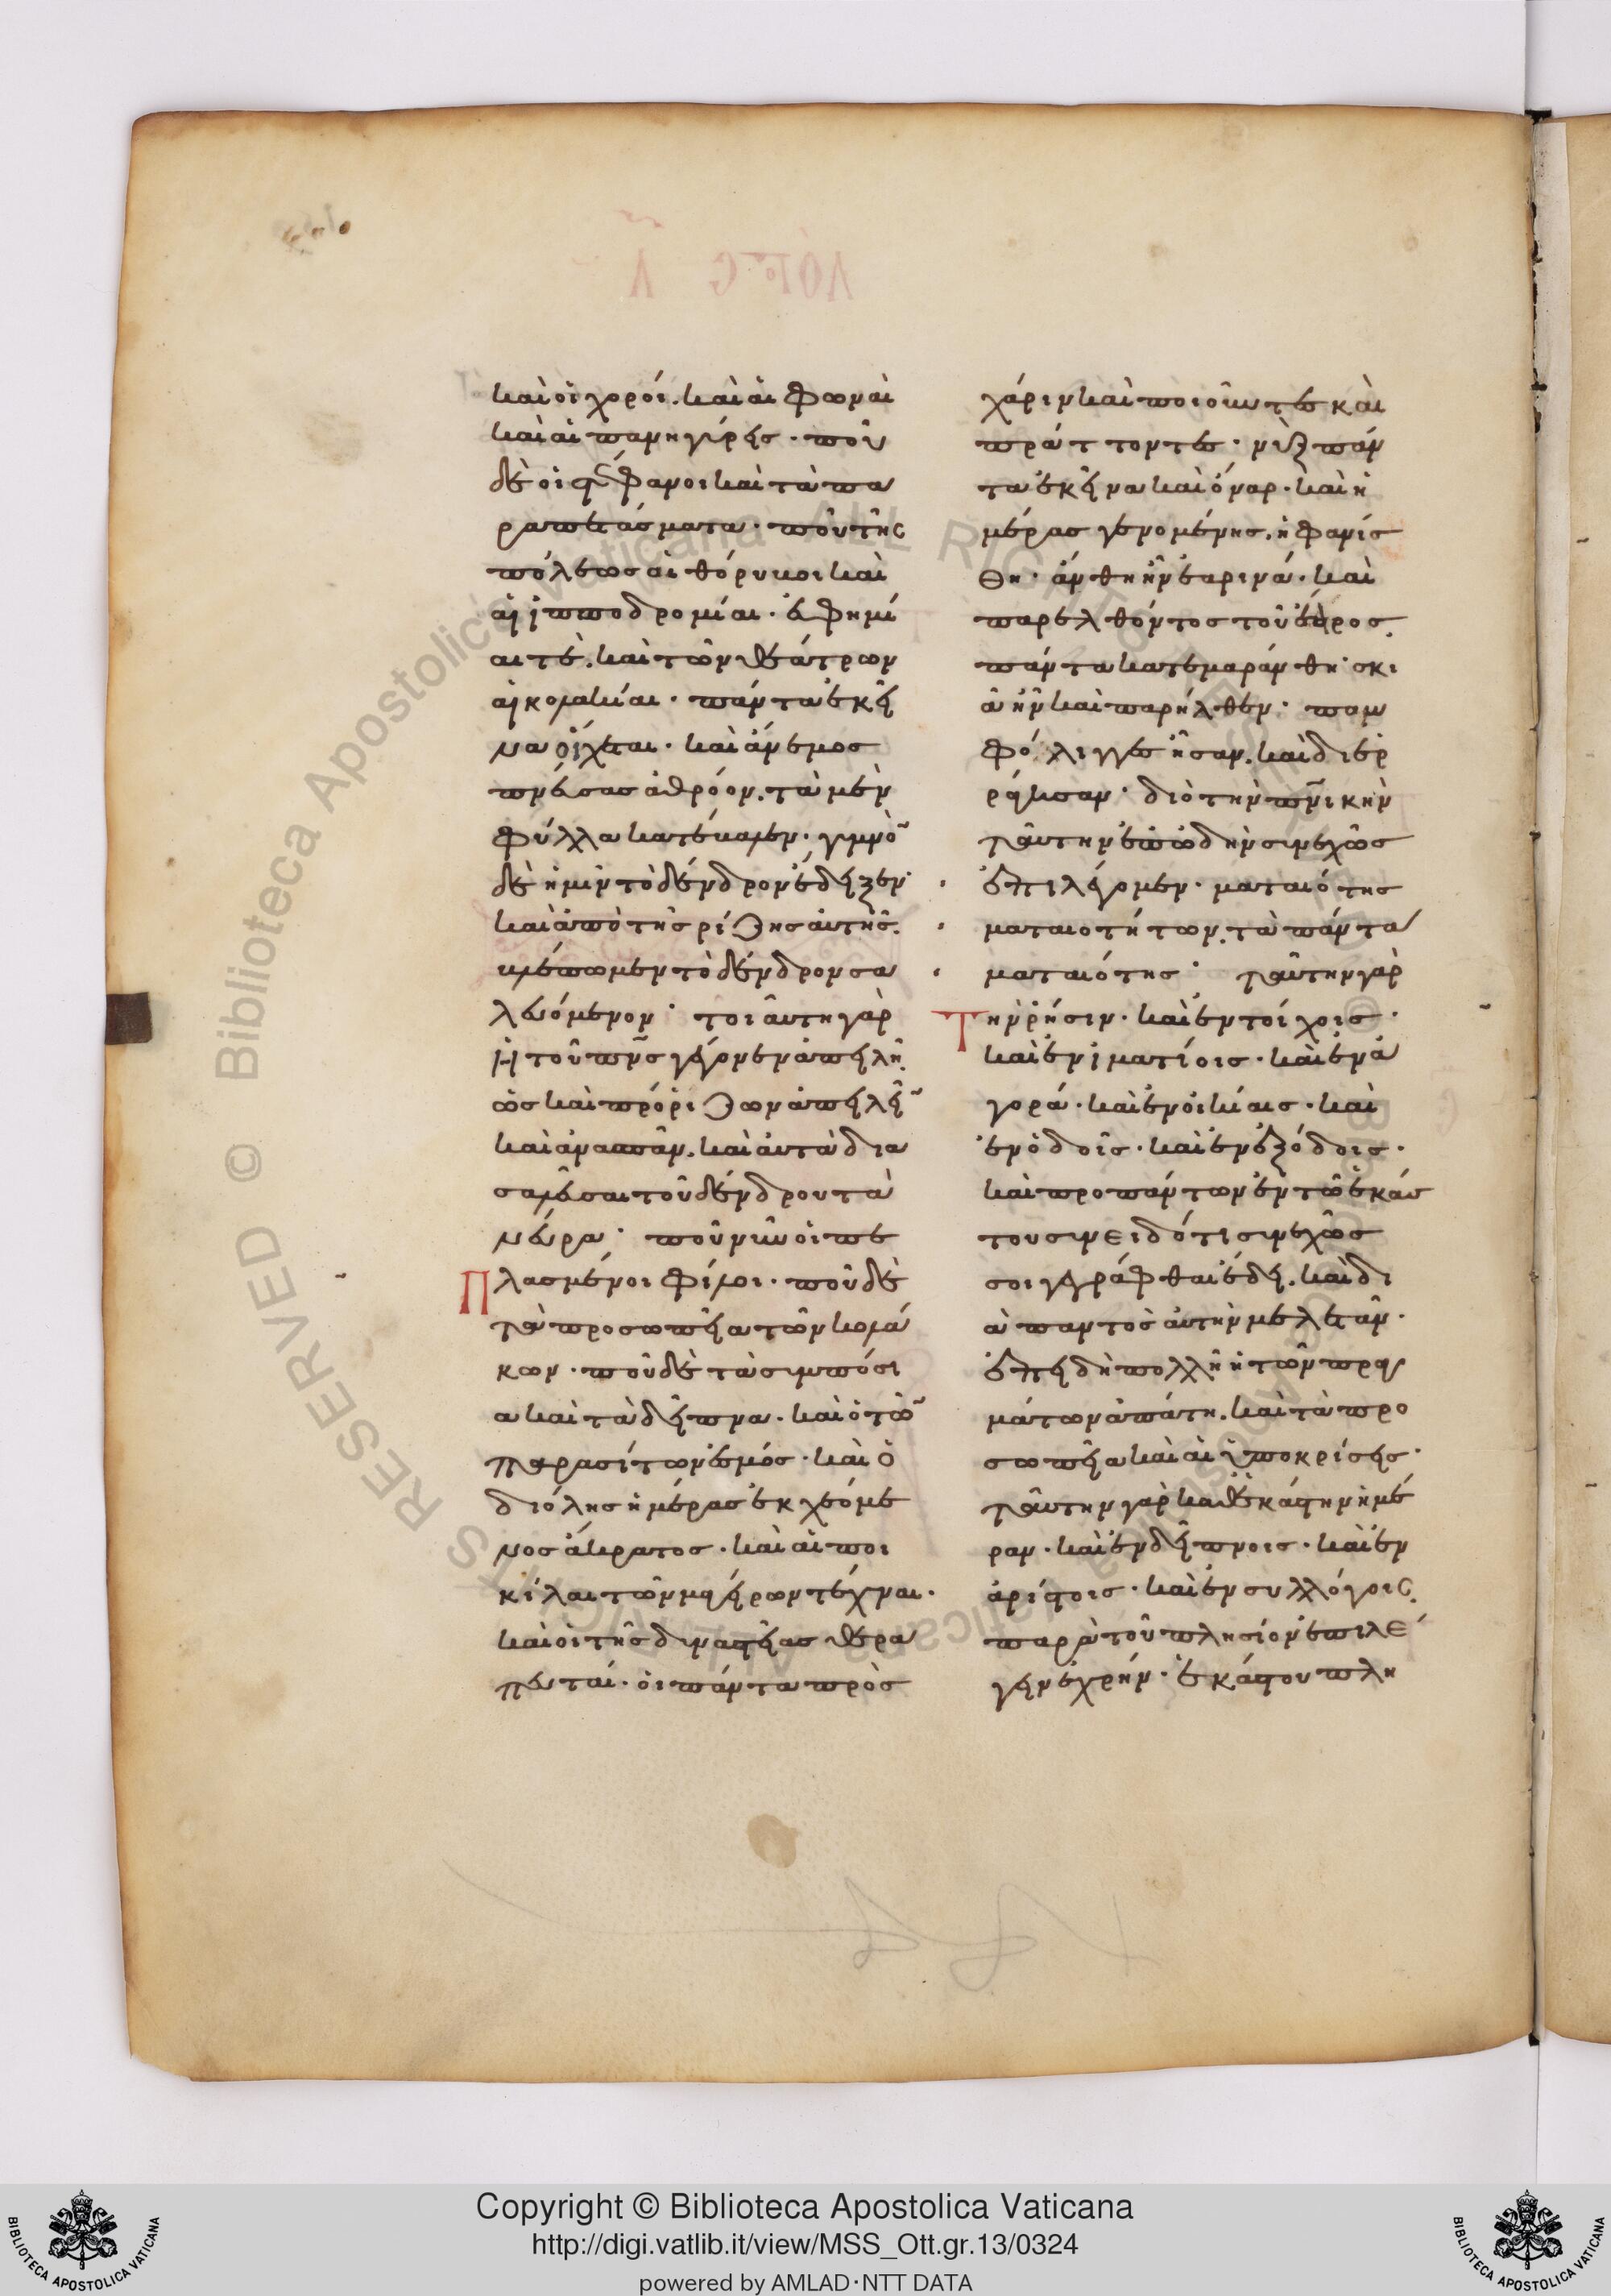 καὶ οἱ χοροί. καὶ αἱ φωναὶ
καὶ αἱ πανηγύρεις· ποῦ
δὲ οἱ στέφανοι καὶ τὰ πα
ραπετάσματα· ποῦ τῆς
πόλεως οἱ θόρυβοι καὶ
αἱ ἱπποδρομίαι· εὐφημί
αι τὲ. καὶ τῶν θεάτρων
αἱ κολακίαι· πάντα ἐκεῖ
να οἴχεται· καὶ ἄνεμος
πνεύσας ἀθρόον. τὰ μὲν
φύλλα κατέβαλεν· γυμνὸ̄
δὲ ἡμῖν τὸ δένδρον ἔδειξεν·
καὶ ἀπὸ τῆς ρίζης αὐτῆς.
βλέπωμεν τὸ δένδρον σα
λευόμενον· τοιαύτη γὰρ
ἡ τοῦ πν̄ς γέγονεν ἀπειλὴ.
ὡς καὶ πρόριζον ἀπειλεῖ̄
καὶ ἀνασπᾶν. καὶ αὐτὰ δια
σαλεῦσαι τοῦ δένδρου τὰ
νεῦρα· ποῦ νῦν οἱ πε
πλασμένοι φίλοι· ποῦ δὲ
τὰ προσωπεῖα τῶν κολά
κων· ποῦ δὲ τὰ συμπόσι
α καὶ τὰ δεῖπνα· καὶ ὁ τῶ̄
παρασίτων ἑσμός· καὶ ὁ
διόλης ἡμέρας ἐκχεόμε
νος ἄκρατος· καὶ αἱ ποι
κίλαι τῶν μαγείρων τέχναι·
καὶ οἱ τῆς δυναστείας θερα
πευταί· οἱ πάντα πρὸς
χάριν καὶ ποιοῦντες καὶ
πράττοντες· νὺξ πάν
τα ἐκεῖνα καὶ ὄναρ· καὶ ἡ
μέρας γενομένης. ἠφανίσ
θη· ἄνθη ἦν ἐαρινά· καὶ
παρελθόντος τοῦ ἔαρος.
πάντα κατεμαράνθη· σκι
ὰ ἦν καὶ παρῆλθεν· πομ
φόλιγγες ἦσαν. καὶ διερ
ράγησαν· διὸ τὴν πν̄ικὴν
ταύτην ἐπωδὴν συνεχῶς
ἐπιλέγομεν· ματαιότης
ματαιοτήτων. τὰ πάντα
ματαιότης· ταύτην γὰρ
Τὴν ρῆσιν· καὶ ἐν τοίχοις·
καὶ ἐν ἱματίοις· καὶ ἐν ἀ
γορά· καὶ ἐν οἰκίαις· καὶ
ἐν ὁδοῖς· καὶ ἐν ἐξόδοις·
καὶ προπάντων ἐν τῶ ἑκάσ
του συνειδότι συνεχῶς
σοι γεγράφθαι ἔδει. καὶ δι
ὰ παντὸς αὐτὴν μελετᾶν·
ἐπειδὴ πολλὴ ἡ τῶν πραγ
μάτων ἀπάτη. καὶ τὰ προ
σωπεῖα καὶ αἱ ὑποκρίσεις·
ταύτην γὰρ καθεκάστην ἡμέ
ραν· καὶ ἐν δείπνοις· καὶ ἐν
ἀρίστοις· καὶ ἐν συλλόγοις.
παρὰ τοῦ πλησίον ἐπιλέ
γειν ἐχρῆν· ἑκάστου πλη
Copyright © Biblioteca Apostolica Vaticana
http://digi.vatlib.it/view/MSS_Ott.gr.13/0324
powered by AMLAD·NTT DATA